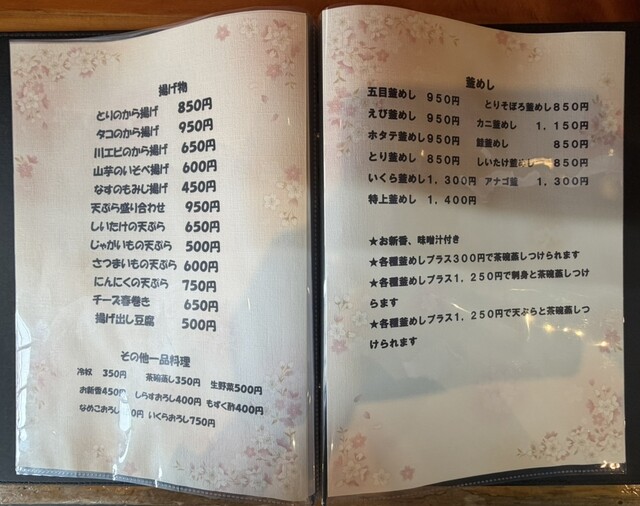 揚げ物
とりのから揚げ 850円
タコのから揚げ 950円
川エビのから揚げ 650円
山芋のいそべ揚げ 600円
なすのもみじ揚げ 450円
天ぷら盛り合わせ 950円
しいたけの天ぷら 650円
じゃがいもの天ぷら 500円
さつまいもの天ぷら 600円
にんにくの天ぷら 750円
チーズ春巻き 650円
揚げ出し豆腐 500円
その他一品料理
冷奴 350円 茶碗蒸し350円 生野菜500円
お新香450円 しらすおろし400円 もずく酢400円
なめこおろし 円 いくらおろし750円
釜めし
五目釜めし 950円 とりそぼろ釜めし850円
えび釜めし 950円 カニ釜めし 1,150円
ホタテ釜めし950円 鮭釜めし 850円
とり釜めし 850円 しいたけ釜めし 850円
いくら釜めし1,300円 アナゴ釜 1,300円
特上釜めし 1,400円
★お新香、味噌汁付き
★各種釜めしプラス300円で茶碗蒸しつけられます
★各種釜めしプラス1,250円で刺身と茶碗蒸しつけ
らます
★各種釜めしプラス1,250円で天ぷらと茶碗蒸しつ
けられます